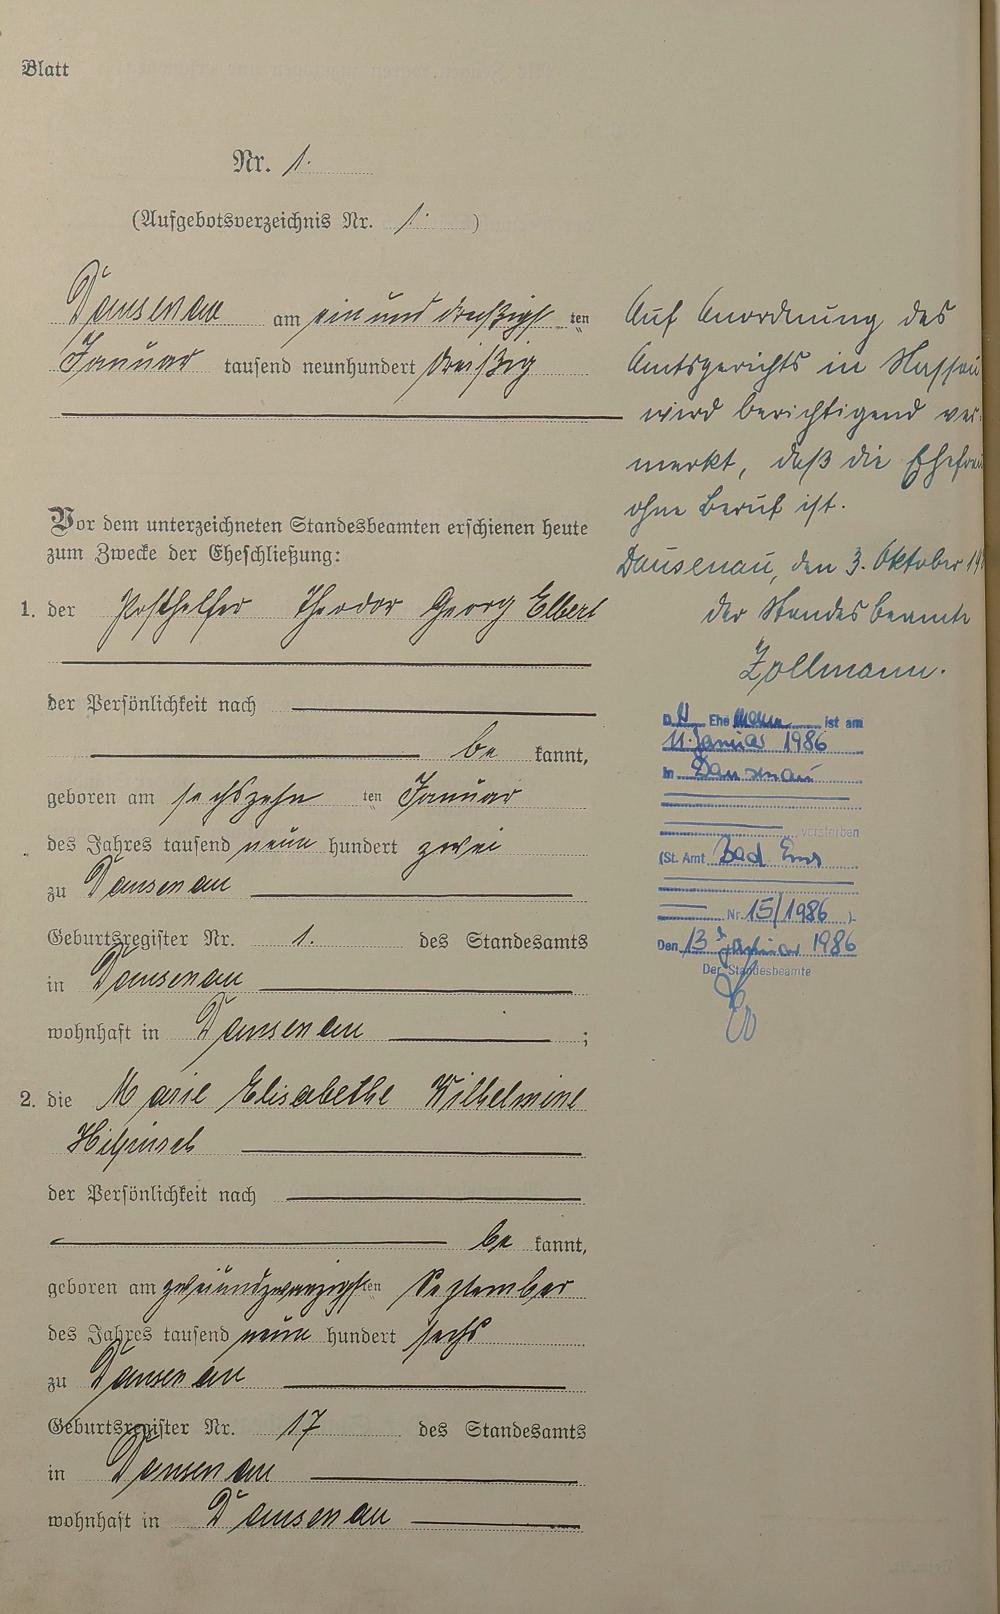 Blatt
Nr. 1.
(Aufgebotsverzeichnis Nr. 1. )
Dausenau am ein und dreißigsten
Januar tausend neunhundert dreißig
Vor dem unterzeichneten Standesbeamten erschienen heute
zum Zwecke der Eheschließung:
1. der Posthelfer Theodor Georg Elbert
der Persönlichkeit nach
be kannt,
geboren am sechszehn ten Januar
des Jahres tausend neun hundert zwei
zu Dausenau
Geburtsregister Nr. 1. des Standesamts
in Dausenau
wohnhaft in Dausenau ;
2. die Marie Elisabethe Wilhelmine
der Persönlichkeit nach
be kannt,
geboren am zweiundzwanzigsten September
des Jahres tausend neun hundert sechs
zu Dausenau
Geburtsregister Nr. 17 des Standesamts
in Dausenau
wohnhaft in Dausenau
Auf Anordnung des
Amtsgerichts in Nassau
wird berichtigend ver-
merkt, daß die Ehefrau
ohne Beruf ist.
Dausenau, den 3. Oktober
der Standesbeamte
Zollmann.
D er Ehemann ist am
11. Januar 1986
in Dausenau
verstorben
(St. Amt Bad Ems
Nr. 15/1986 ).
Den 13. Januar 1986
Der Standesbeamte